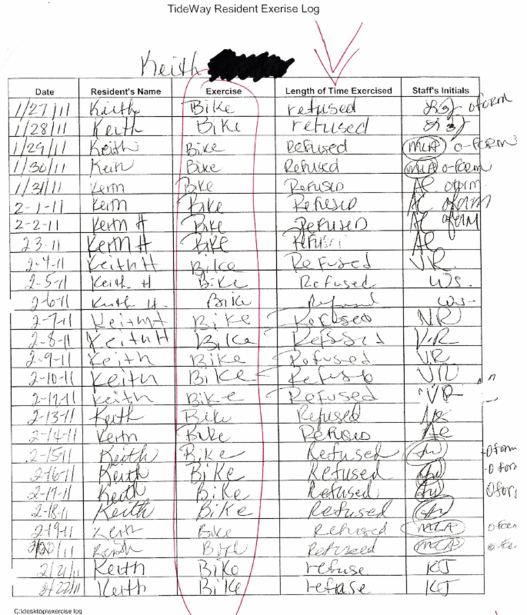 TideWay Resident Exerise Log
Keith
Date Resident's Name Exercise Length of Time Exercised Staff's Initials
1/27/11 Keith Bike refused oform
1/28/11 Keith Bike refused
1/29/11 Keith Bike Refused MLA o-form
1/30/11 Keith Bike Refused MLA o-form
1/31/11 Keith Bike Refused AC oform
2-1-11 Keith Bike Refused AC oform
2-2-11 Keith H Bike Refused AC oform
2 3-11 Keith H Bike Refused AC
2-4-11 Keith H Bike Refused VR
2-5-11 Keith H Bike Refused WS.
2-6-11 Keith H. Bike Refused WS.
2-7-11 Keith H Bike Refused VR
2-8-11 Keith H Bike Refused VR
2-9-11 Keith Bike Refused VR
2-10-11 Keith Bike Refused VR
2-12-11 Keith Bike Refused VR
2-13-11 Keith Bike Refused AC
2-14-11 Keith Bike Refused AC
2-15-11 Keith Bike Refused oform
2-16-11 Keith Bike Refused o form
2-17-11 Keith Bike Refused, oform
2-18-11 Keith Bike Refused
2-19-11 Keith Bike Refused MLA o-form
2/20/11 Keith Bike Refused MLA
2/21/11 Keith Bike refuse KJ
2/22/11 Keith Bike refuse KJ
C:\desktop\exercise log